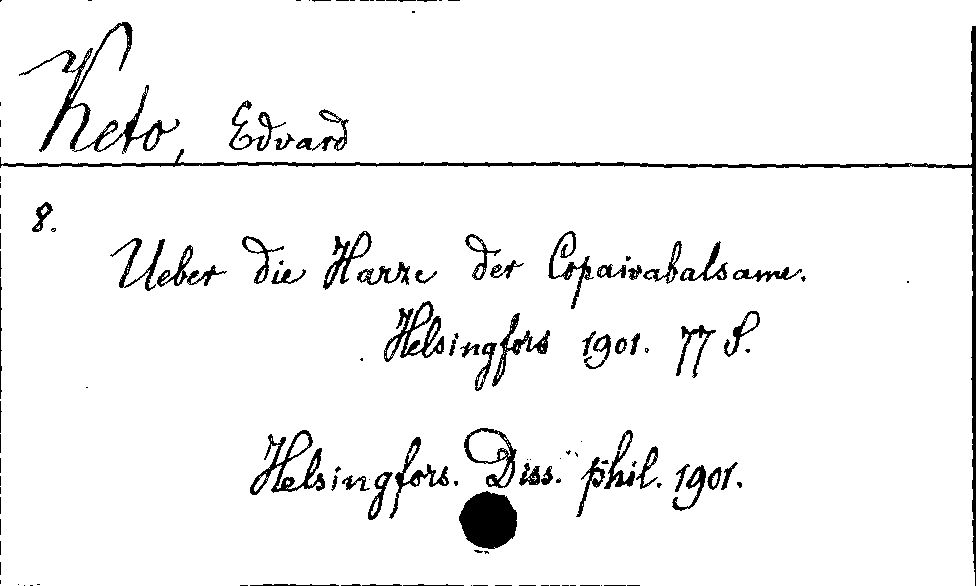 Keto, Edvard
8.
Ueber die Harze der Copaivabalsame.
Helsingfors 1901. 77 S.
Helsingfors. Diss. phil. 1901.